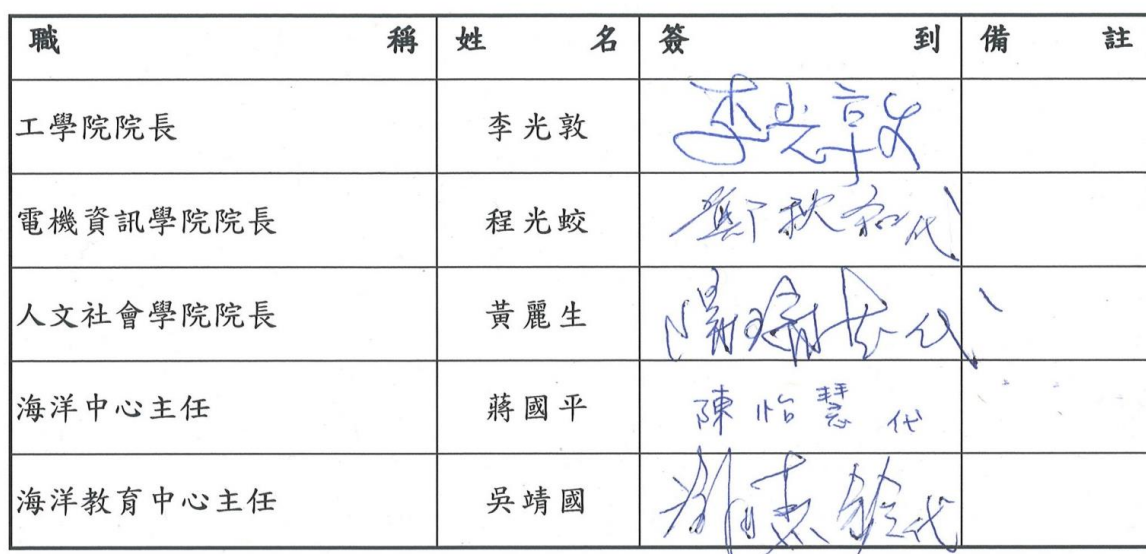 職稱 姓名 簽到 備註
工學院院長 李光敦 李光敦
電機資訊學院院長 程光蛟 鄭秋和代
人文社會學院院長 黃麗生 代
海洋中心主任 蔣國平 陳怡慧 代
海洋教育中心主任 吳靖國 代